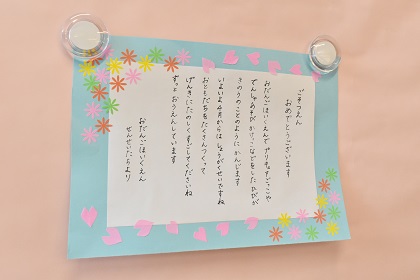 ごそつえん
おめでとうございます
おだんごほいくえんで アリをみつけたことや
でんしゃあそび かけっこなどをした ひびが
きのうのことのように かんじます
いよいよ 4月からは しょうがくせいですね
おともだちをたくさんつくって
げんきに たのしくすごしてくださいね
ずっと おうえんしています
おだんごほいくえん
せんせいたちより